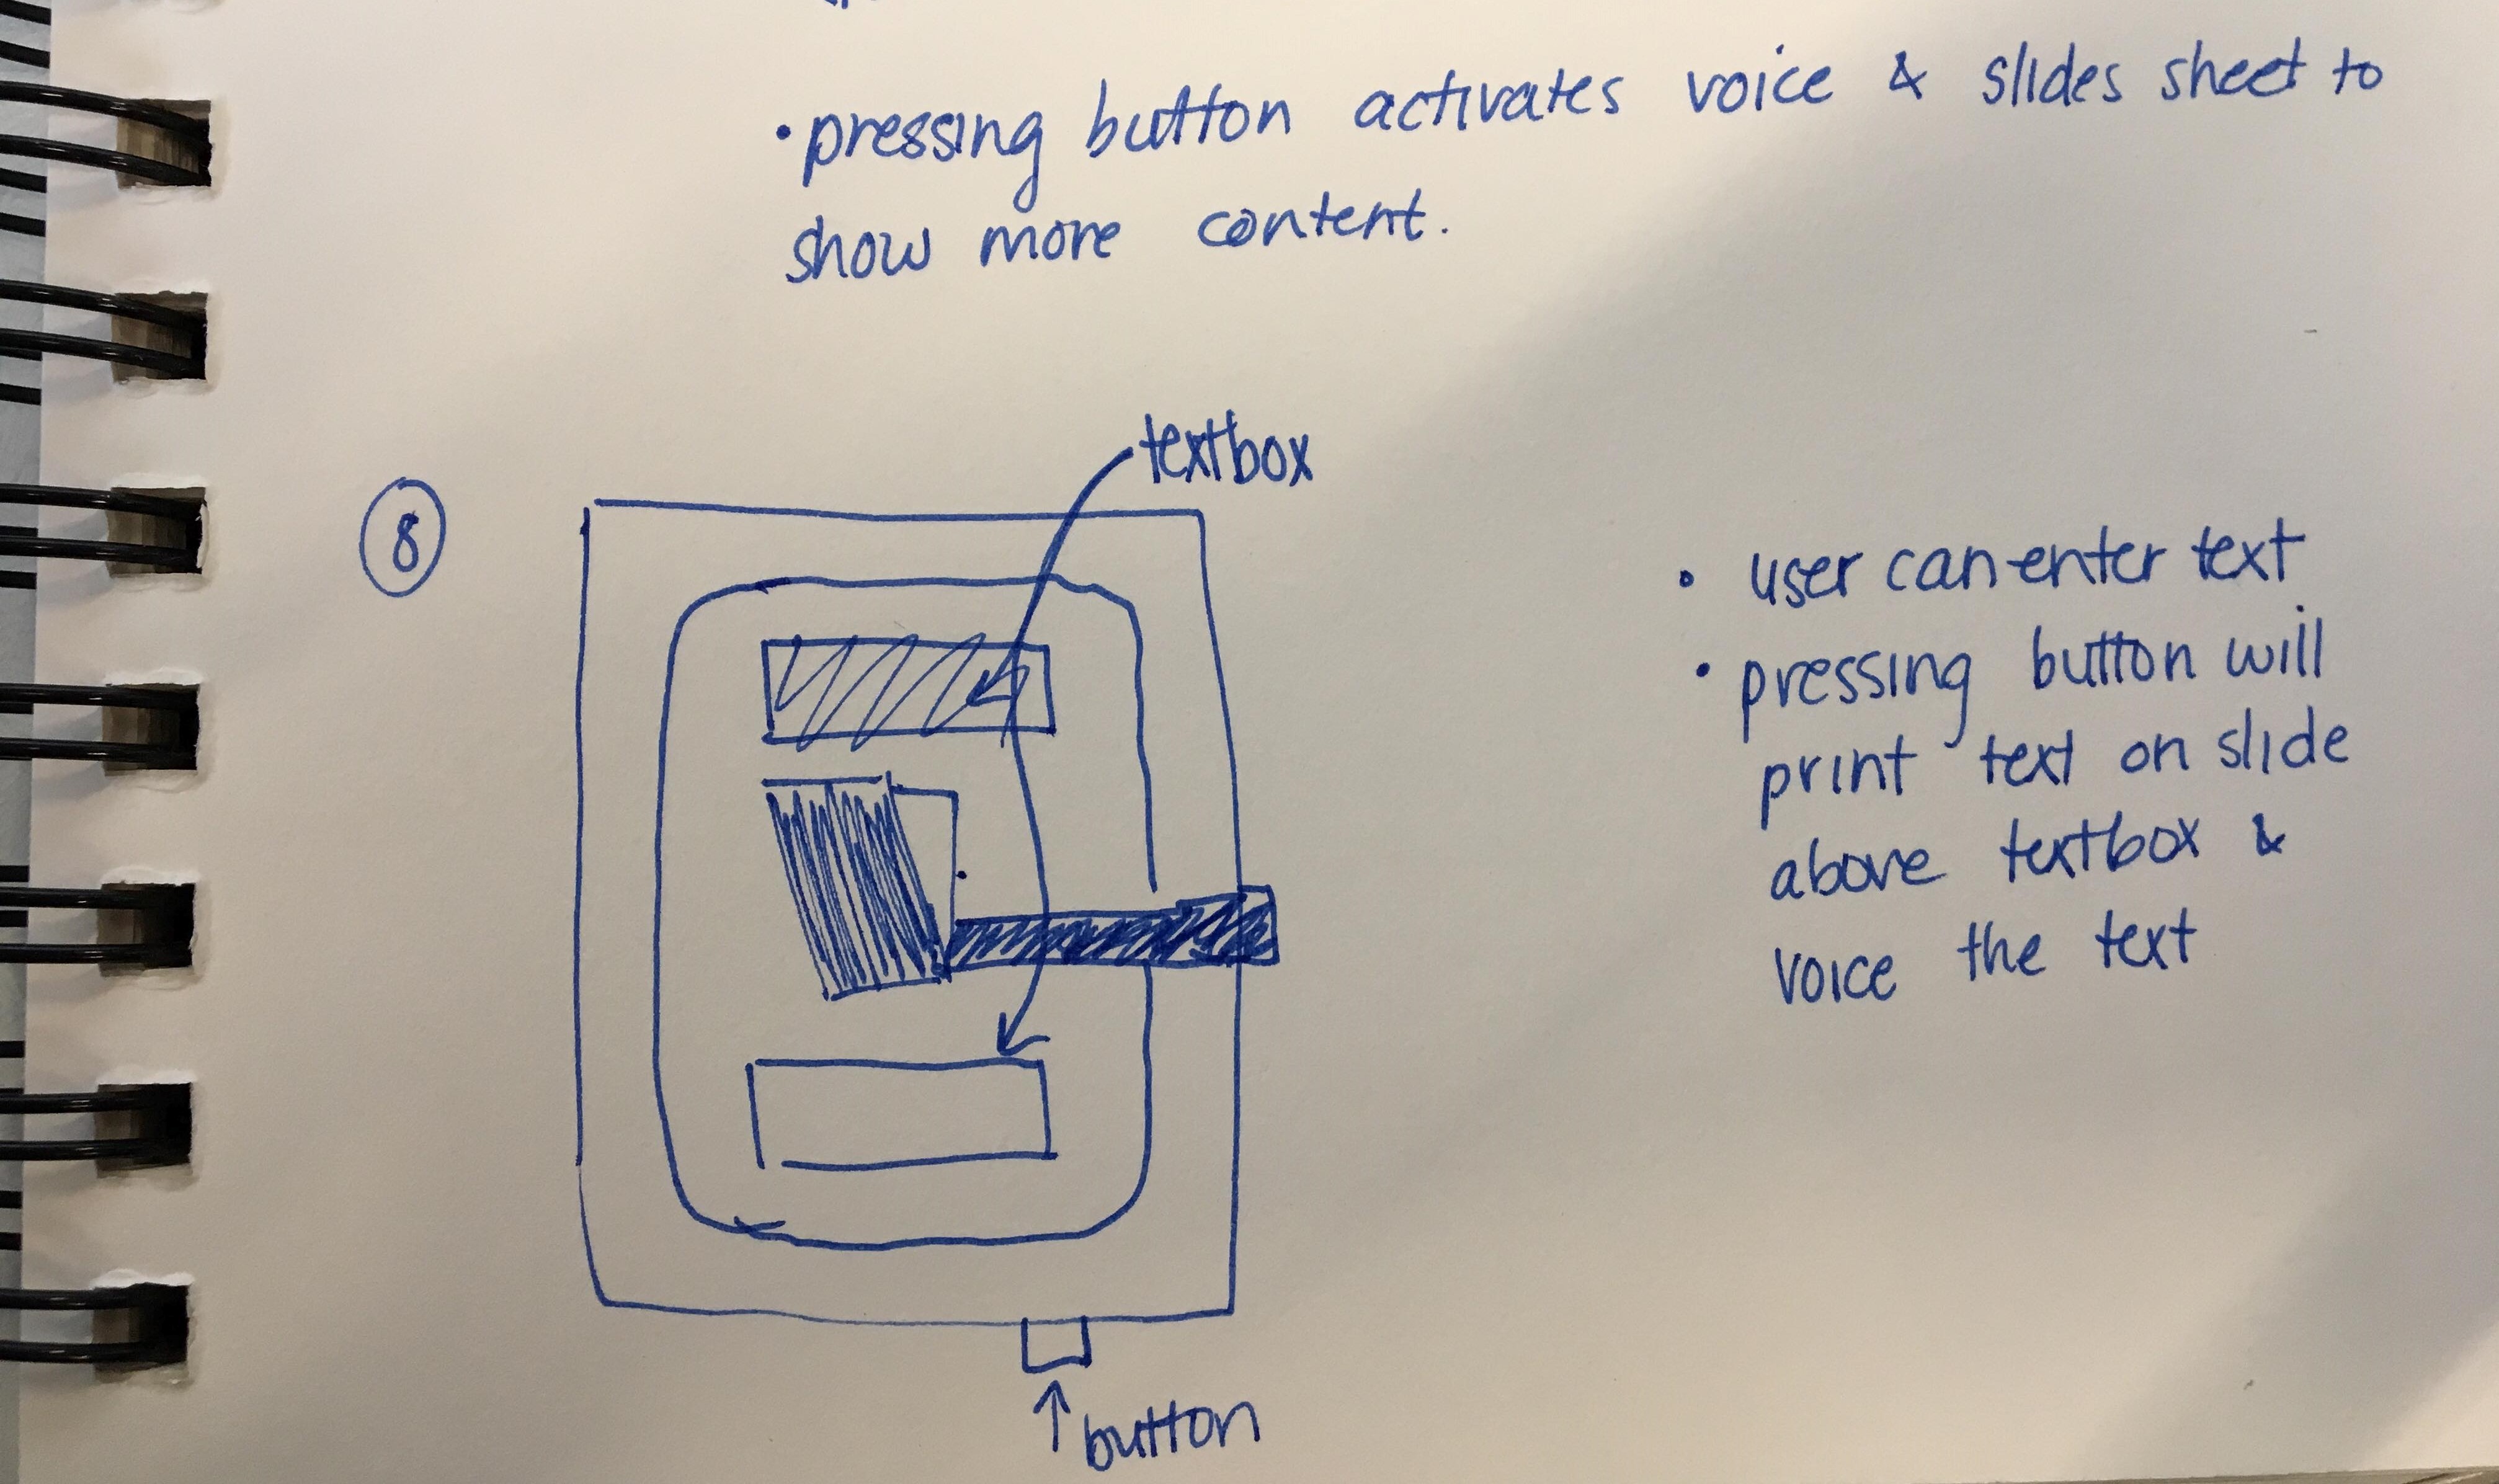 • pressing button activates voice & slides sheet to
show more content.
textbox
8
• user can enter text
• pressing button will
print text on slide
above textbox &
voice the text
button